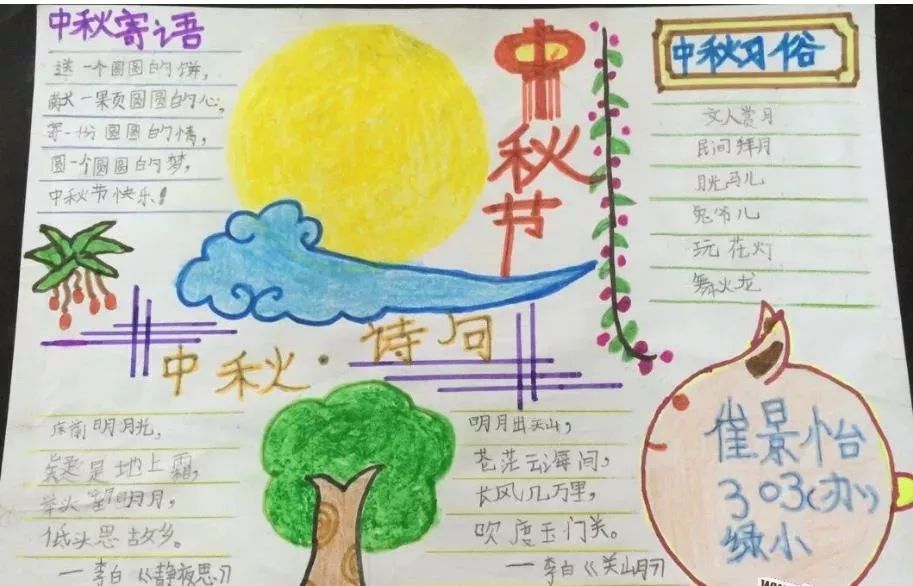 中秋寄语
送一个圆圆的饼,
献一颗圆圆的心,
寄一份圆圆的情,
圆一个圆圆的梦,
中秋节快乐!
中秋节
中秋习俗
文人赏月
民间拜月
月光马儿
兔爷儿
玩花灯
舞火龙
中秋·诗句
床前明月光,
疑是地上霜,
举头望明月,
低头思故乡。
——李白《静夜思》
明月出天山,
苍茫云海间,
长风几万里,
吹度玉门关。
——李白《关山月》
崔景怡
303(办)
绿小